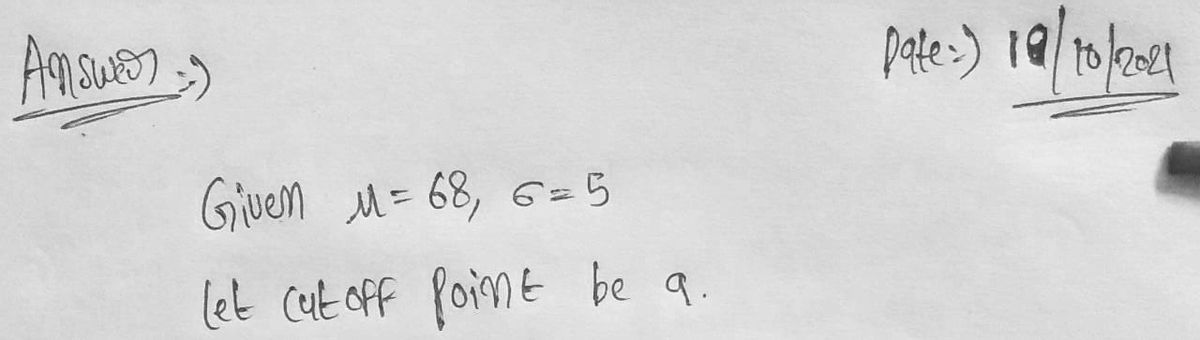 Answer :-) Date :-) 19/10/2021
Given μ = 68, σ = 5
let cutoff point be a.